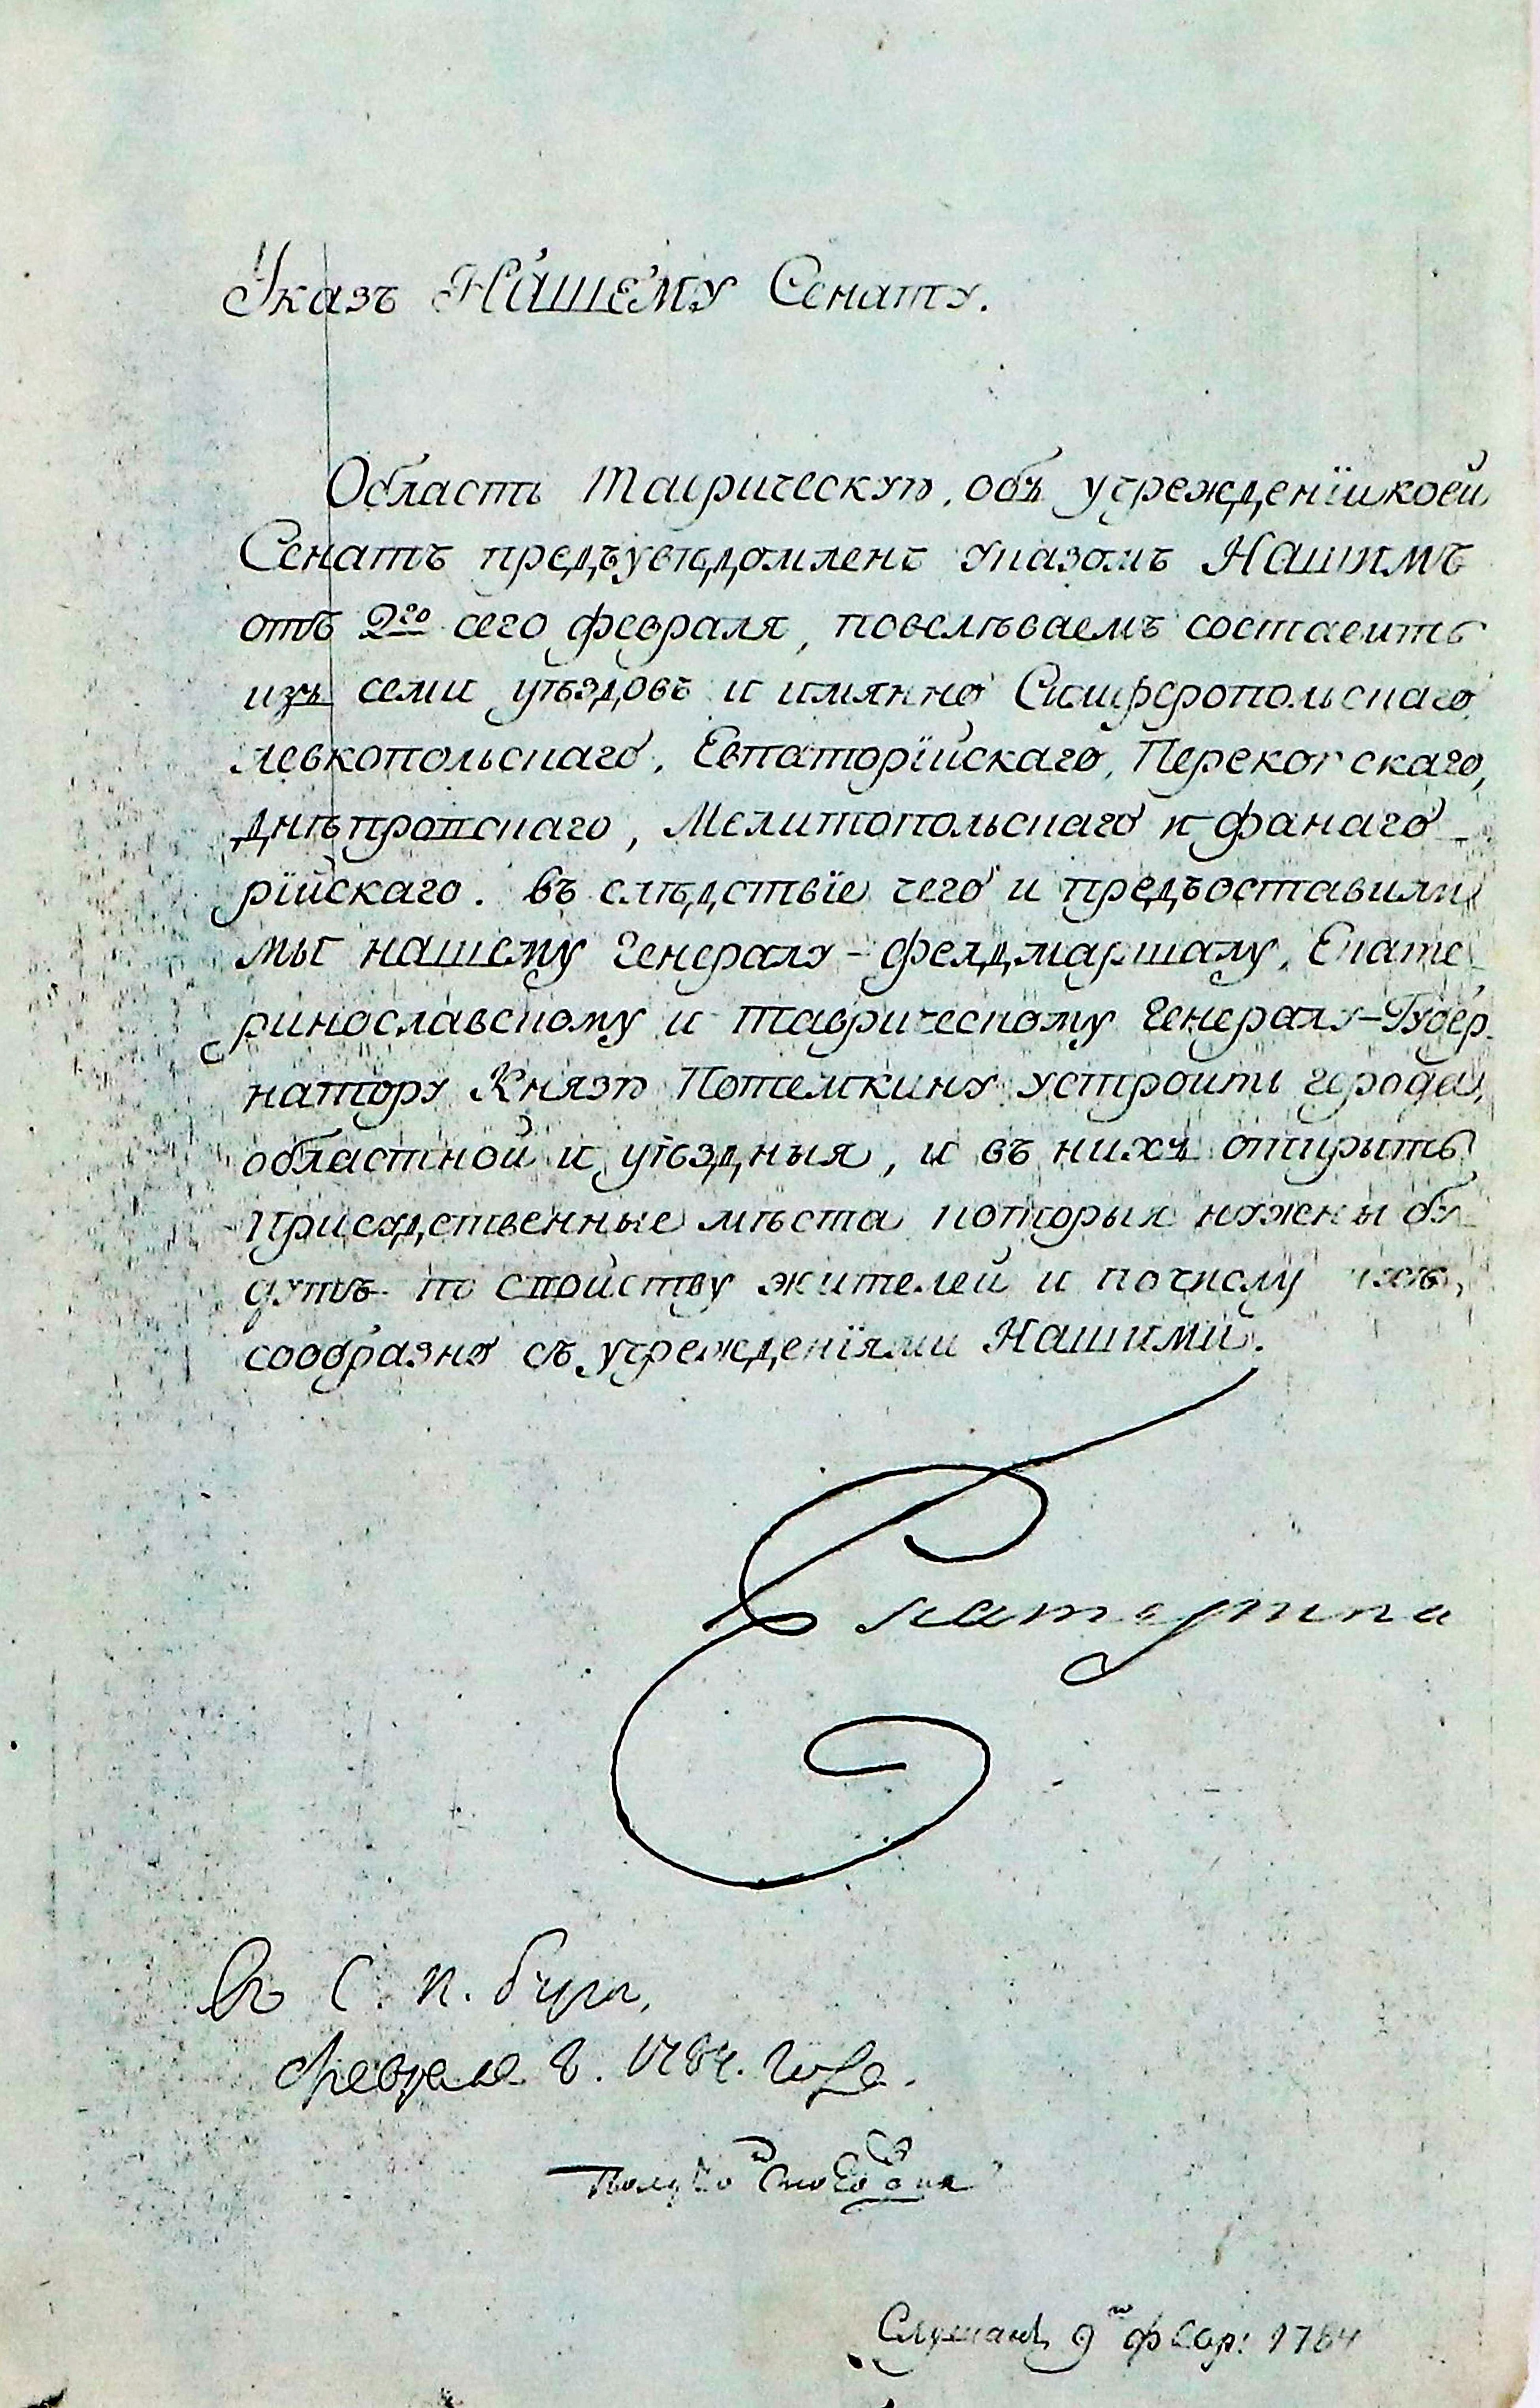 Указъ НАШЕМУ Сенату.
Область Таврическую, объ учрежденїи коей
Сенатъ предъувѣдомленъ указомъ НАШИМЪ
отъ 2го сего февраля, повелѣваемъ составить
изъ семи уѣздовъ и имянно Симферопольскаго,
левкопольскаго, Евпаторїйскаго, Перекопскаго,
днѣпровскаго, Мелитопольскаго и фанаго
рїйскаго. въ слѣдствїе чего и предъоставили
мы нашему генералу-фелдмаршалу, Екате
ринославскому и таврическому генералу-Губер
натору Князю Потемкину устроить города,
областной и уѣздныя, и въ нихъ открыть
присудственные мѣста которыя нужны бу
дутъ по свойству жителей и по числу ихъ,
сообразно съ учрежденїями НАШИМИ.
Екатерина
въ С. П. бурге,
февраля 8. 1784. года.
Слушанъ 9го февр: 1784